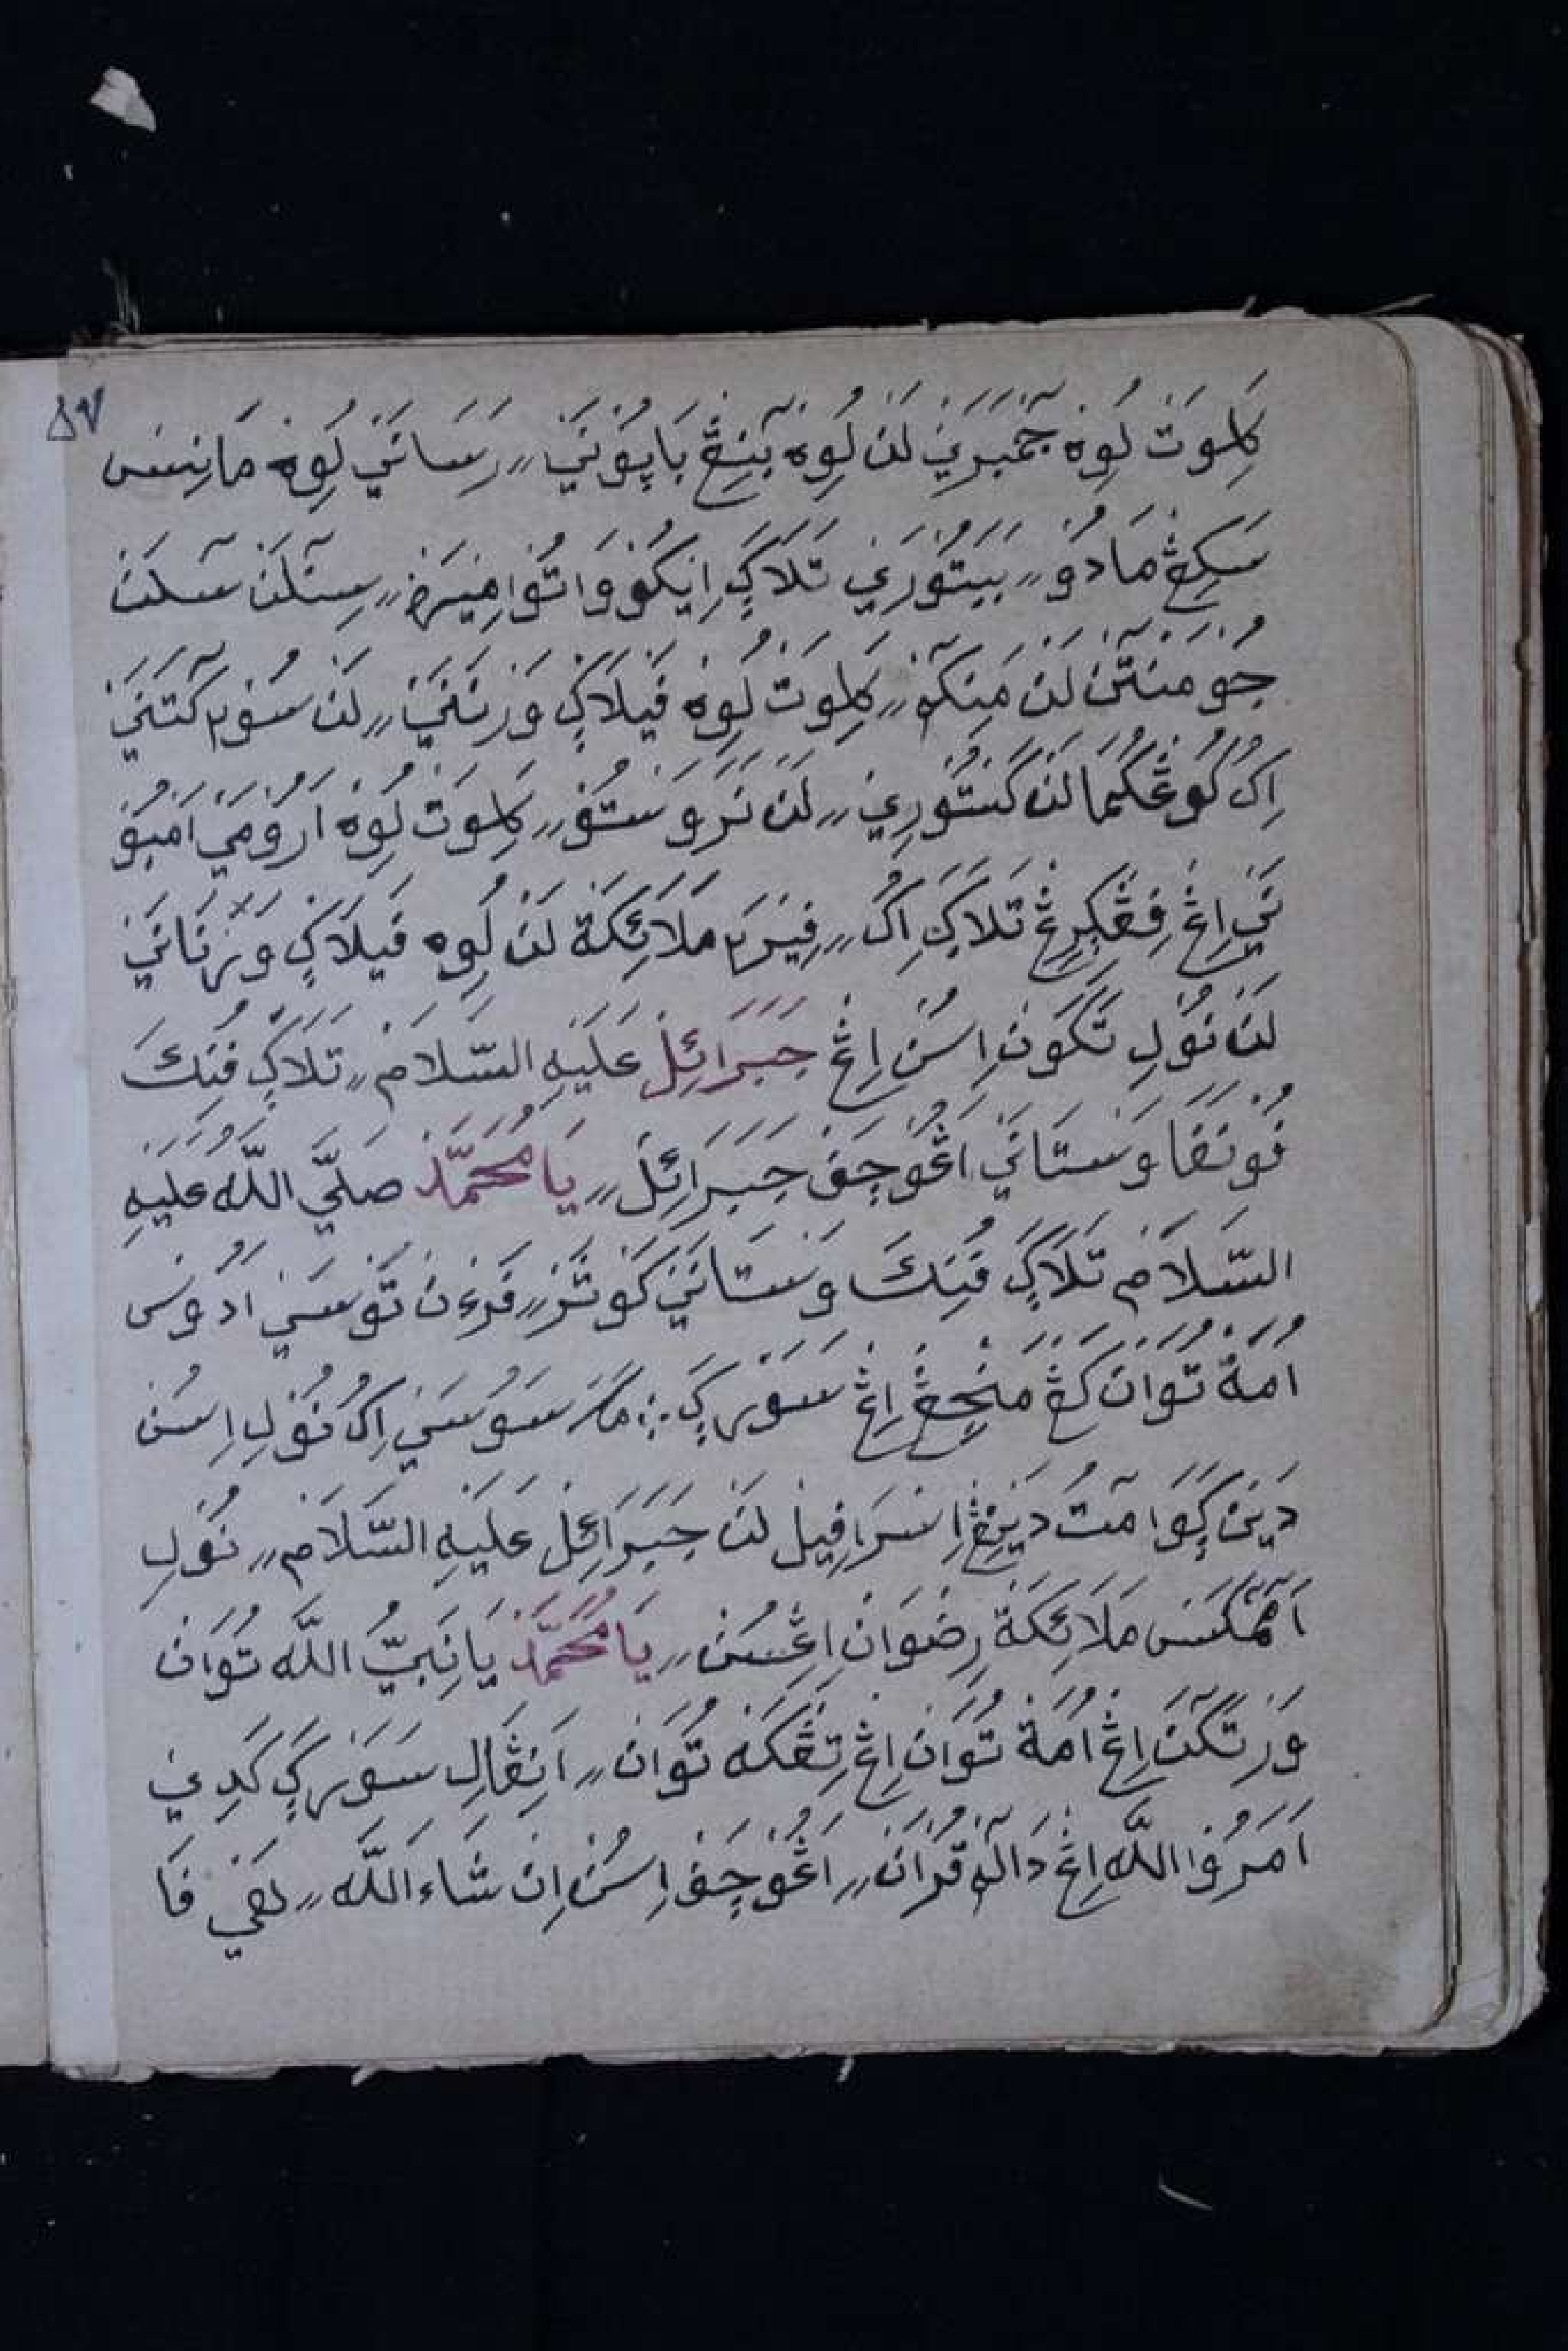 ٥٧
كَلِوَتْ لُوِهْ جَمْبَرَيْ لَنْ لُوِهْ بٓنِڠْ بَاپُوْنَيْ ٫٫ رَسَانَيْ لُوِهْ مَانِيسْ
سَكِڠْ مَادُوْ ٫٫ بَيْتُوْرَيْ تَلَاݢَ اِيْكُوْ وَاتُوْ امِيْرَهْ ٫٫ سِيْلَنْ سٓلَنْ
جُوْمَنْتٓنْ لَنْ مَنِكٓمْ ٫٫ كَلِوَتْ لُوِهْ فَيْلَاكْ وَرْنَنَيْ ٫٫ لَنْ سُوْر٢ كٓتَنَيْ
اِكُ كُوْڠْكُمَا لَنْ كَسْتُوْرِيْ ٫٫ لَنْ نَرَوَسْتُوْ ٫٫ كَلِوَتْ لُوِهْ اَرُوْمَيْ اَمْبُوْ
نَيْ اِڠْ فِڠْݢِرِڠْ تَلَاݢَ اِكُ ٫٫ فِيْرَ٢ مَلَائِكَةْ لَنْ لُوِهْ فَيْلَاكْ وَرْنَانَيْ
لَنْ نُوْلِ تَكَوْنْ اِسُنْ اِڠْ جَبَرَائِلْ عَلَيْهِ السَّلَامْ ٫٫ تَلَاݢَ فُنِكَ
فُوْنَفَا وَسْتَانَيْ اَڠُوْچَفْ جَبَرَائِلْ ٫٫ يَا مُحَمَّدْ صَلَّي اللّٰهُ عَلَيْهِ
السَّلَامْ تَلَاݢَ فُنِكَ وَسْتَانَيْ كَوْثَرْ ٫٫ فَرْءَنْ تُوْسَنْ اَدُوْسْ
اُمَةْ تُوَانْ كَڠْ مَنْجِڠْ اِڠْ سَوَرْݢَ ؞ مَكَ سَوُوْسَيْ اِكُ نُوْلِ اِسُنْ
دَيْنْ ݢَوَا مٓتُ دَيْنِڠْ اِسْرَافِيلْ لَنْ جَبَرَائِلْ عَلَيْهِ السَّلَامْ ٫٫ نُوْلِ
اَمٓكَسْ مَلَائِكَةْ رِضْوَانْ اِڠْسُنْ ٫٫ يَا مُحَمَّدْ يَا نَبِيُّ اللّٰه تُوَانْ
وَرْتَكٓنَ اِڠْ اُمَةْ تُوَانْ اِڠْ تِڠْكَهْ تُوَانْ ٫٫ اَنِڠَالِ سَوَرْݢَ كَدِيْ
اَمَرُوْ اللّٰه اِڠْ دَالٓمْ قُرْاٰنْ ٫٫ اَڠُوْچَفْ اِسُنْ اِنْ شَاءَ اللّٰه ٫٫ لَفَيْ فَا